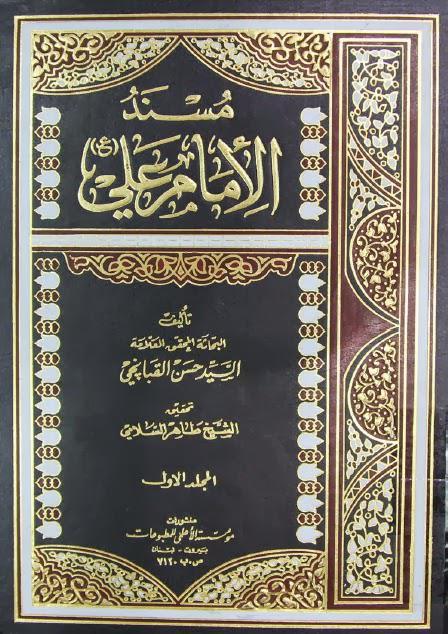 مُسْنَدُ
الإمَام عَلي (ع)
تأليف
البحاثة المحقق العلامة
السَّيِّد حَسَن القبَانجي
تحقيق
الشيخ طاهر السلامي
المجلد الاول
منشورات
مؤسسة الأعلمي للمطبوعات
بيروت - لبنان
ص.ب ٧١٢٠